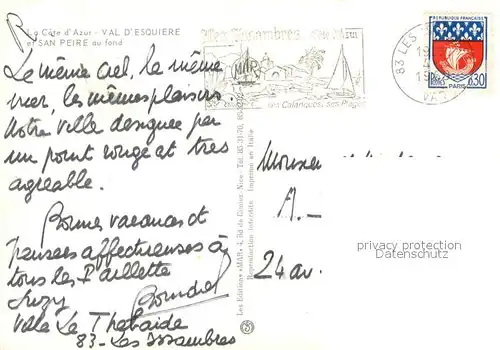 La Côte d'Azur - VAL D'ESQUIERE
et SAN PEIRE au fond
Le même ciel, la même
mer, les mêmes plaisirs.
Notre ville designee par
un point rouge et tres
agreable.
Bonnes vacances et
pensees affectueuses à
tous les Paillette
Suzy
Villa La Thebaide
83 - Les Issambres
Les Issambres
ses Calanques, ses Plages
Les Editions «MAR»
Nice - Tél.
Reproduction interdite Imprimé en Italie
83 LES
VAR
REPUBLIQUE FRANÇAISE
POSTES
0,30
PARIS
Monsieur
A.-
24 av.
privacy protection
Datenschutz